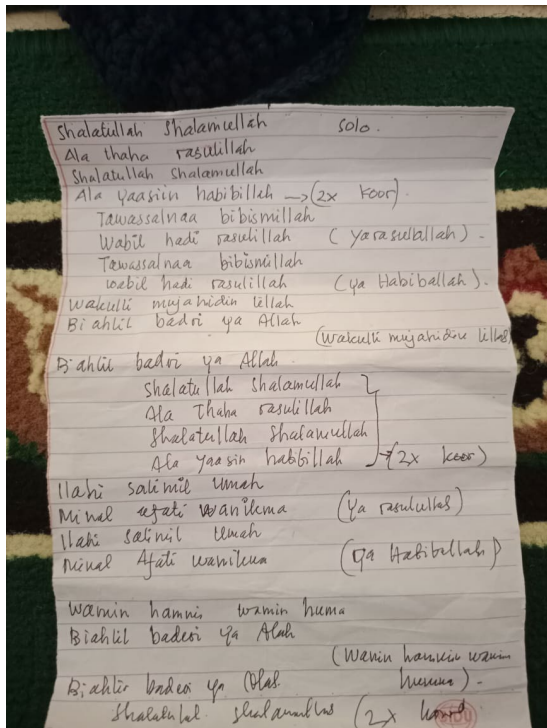 Shalatullah Shalamullah solo.
Ala thaha rasulillah
Shalatullah Shalamullah
Ala yaasiin habibillah → (2x koor).
Tawassalnaa bibismillah
Wabil hadi rasulillah (yarasulallah).
Tawassalnaa bibismillah
wabil hadi rasulillah (ya Habiballah).
Wakulli mujahidin lillah
Bi ahlil badri ya Allah
(wakulli mujahidin lillah
Bi ahlil badri ya Allah.
Shalatullah Shalamullah
Ala Thaha rasulillah
Shalatullah Shalamullah
Ala yaasin habibillah → (2x koor)
Ilahi salimil Umah
Minal afati wanikma (ya rasulullas)
Ilahi salimil Umah
Minal Afati wanikma (ya Habiballah)
Wamin hamnis wamin huma
Biahlil baderi ya Alah
(Wamin wamin
Biahlir baderi ya huma).
Shalatulal (2x